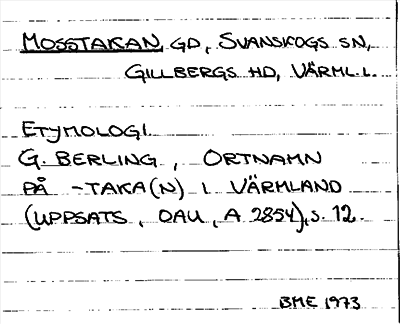 MOSSTAKAN, GD, SVANSKOGS SN,
GILLBERGS HD, VÄRML. L.
ETYMOLOGI
G. BERLING, ORTNAMN
PÅ -TAKA(N) I VÄRMLAND
(UPPSATS, OAU, A 2854), S. 12.
BME 1973